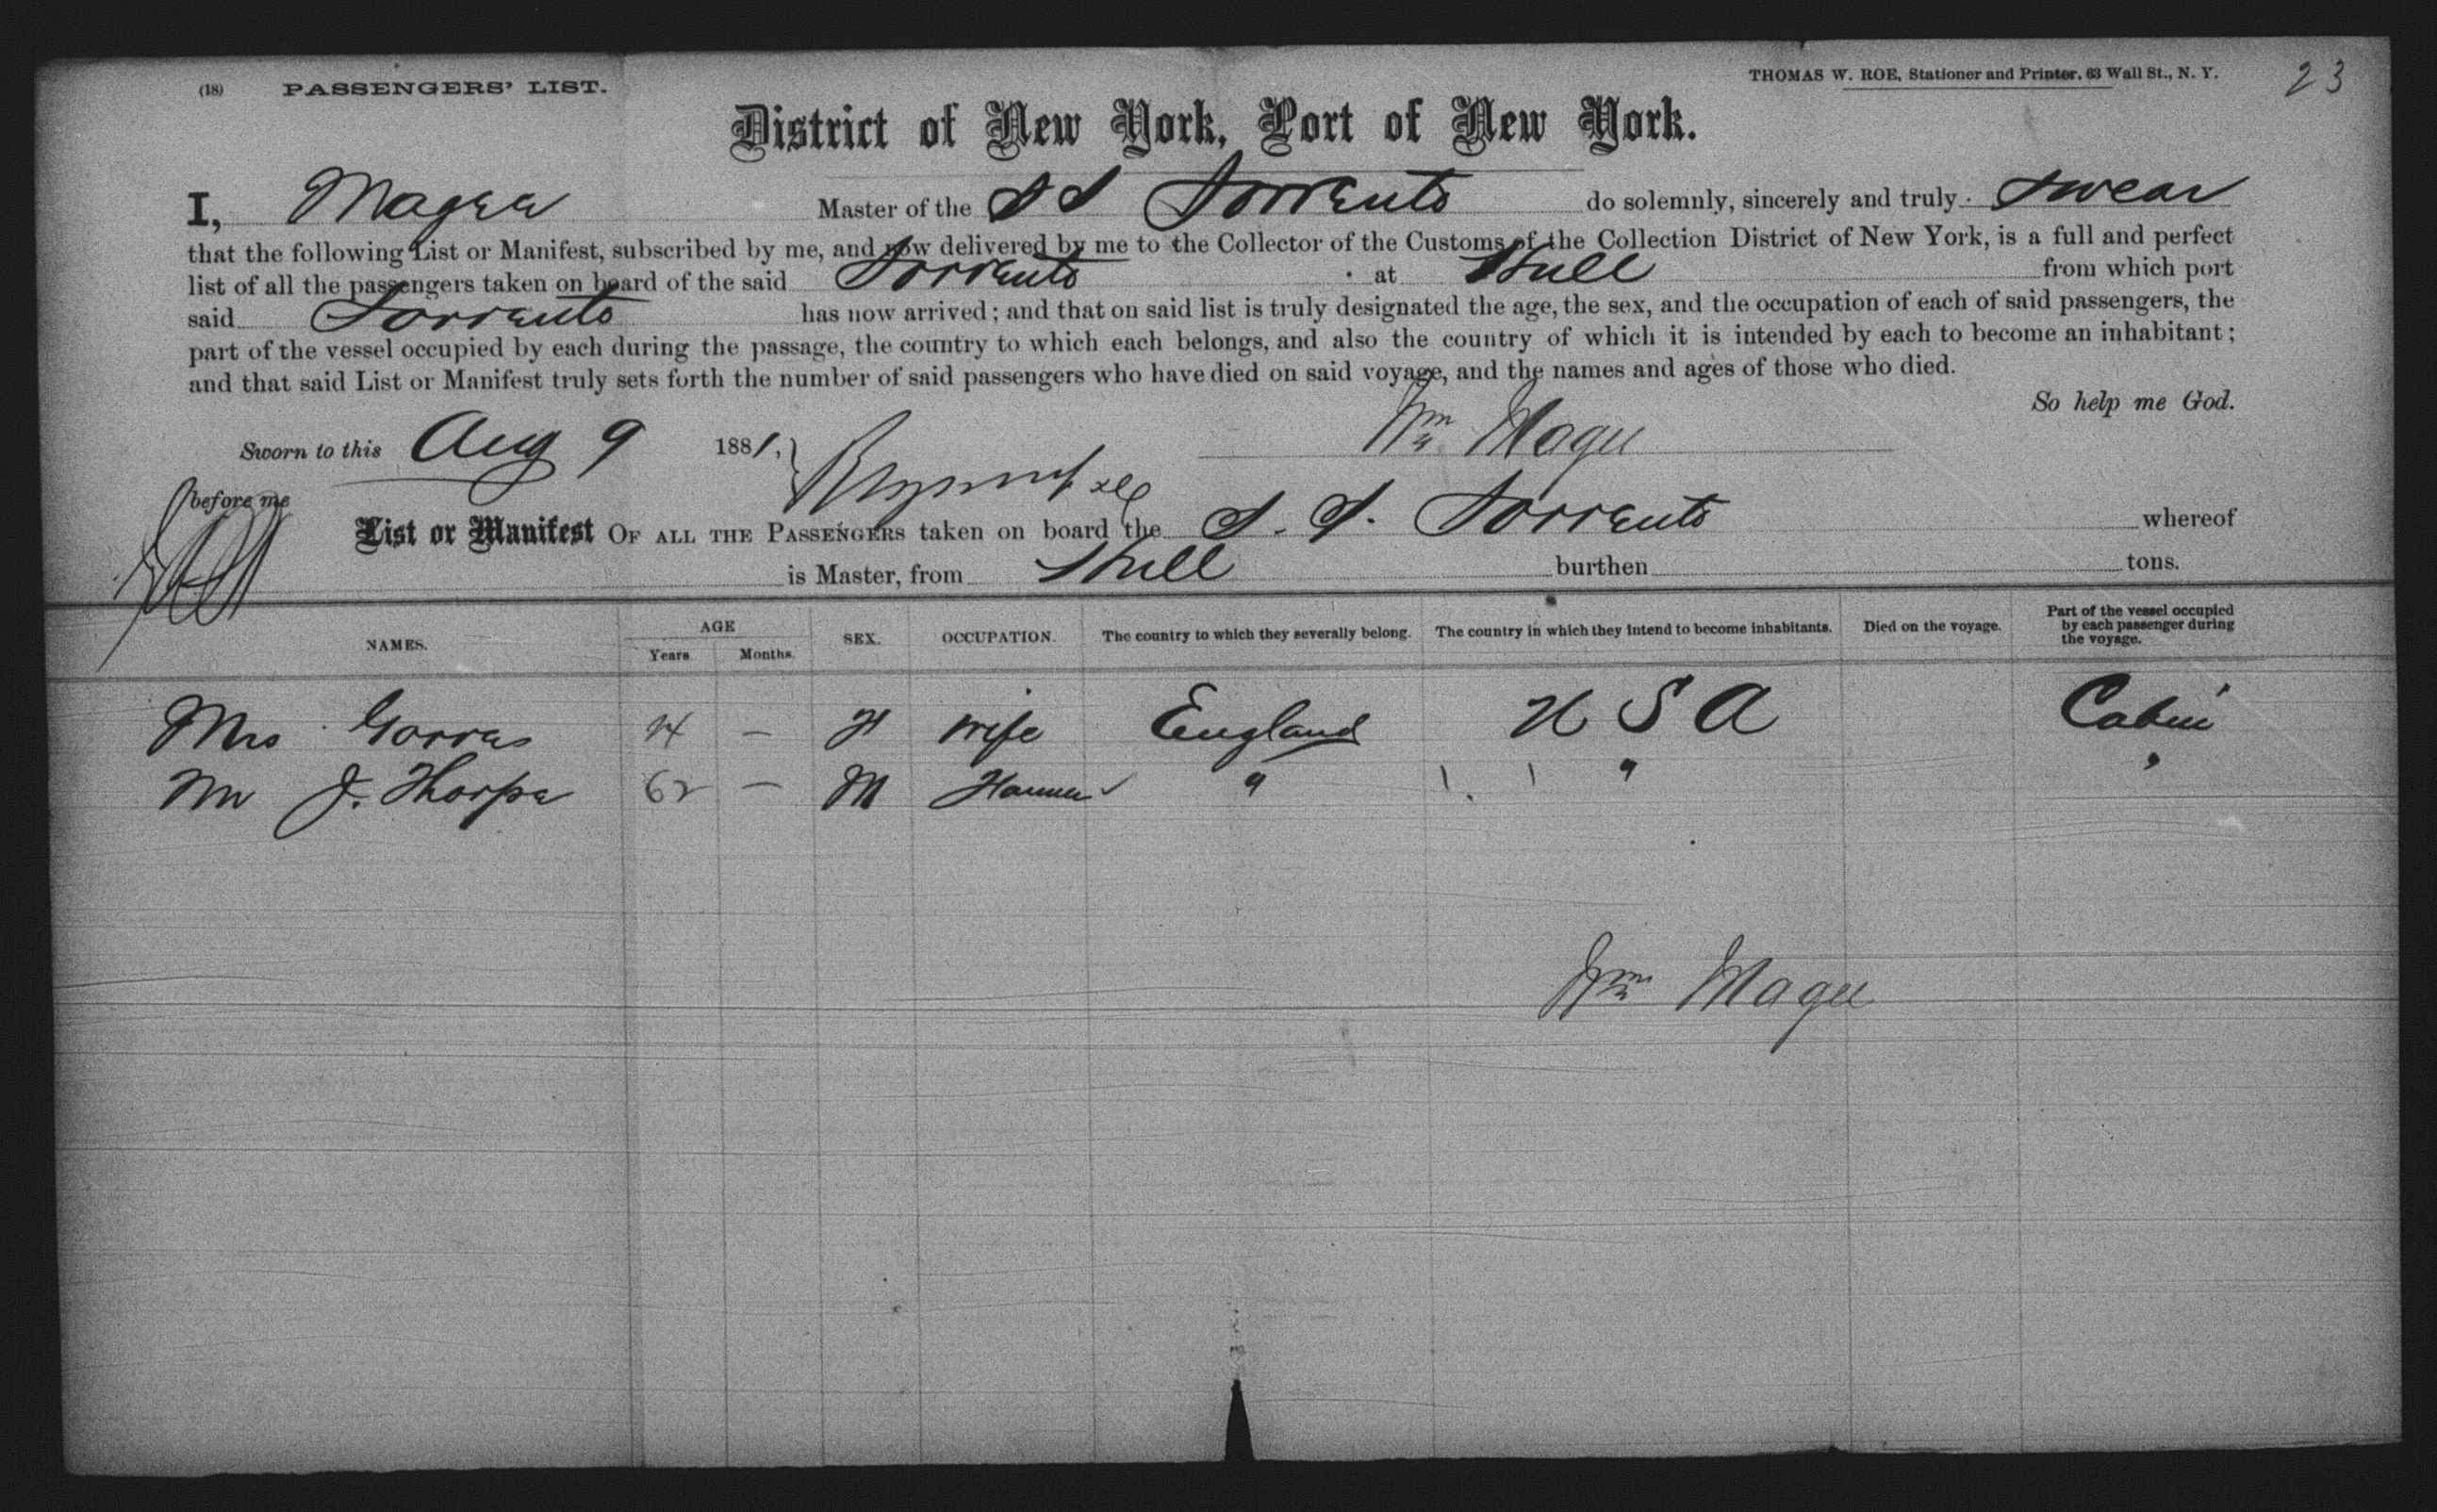 (18) PASSENGERS' LIST.
THOMAS W. ROE, Stationer and Printer, 63 Wall St., N. Y.
23
District of New York, Port of New York.
I, Magee Master of the S S Sorrento do solemnly, sincerely and truly swear
that the following List or Manifest, subscribed by me, and now delivered by me to the Collector of the Customs of the Collection District of New York, is a full and perfect
list of all the passengers taken on board of the said Sorrento at Hull from which port
said Sorrento has now arrived; and that on said list is truly designated the age, the sex, and the occupation of each of said passengers, the
part of the vessel occupied by each during the passage, the country to which each belongs, and also the country of which it is intended by each to become an inhabitant;
and that said List or Manifest truly sets forth the number of said passengers who have died on said voyage, and the names and ages of those who died.
So help me God.
Sworn to this Aug 9 1881, Wm Magee
before me
List or Manifest OF ALL THE PASSENGERS taken on board the S. S. Sorrento whereof
is Master, from Hull burthen tons.
NAMES. AGE Years Months. SEX. OCCUPATION. The country to which they severally belong. The country in which they intend to become inhabitants. Died on the voyage. Part of the vessel occupied by each passenger during the voyage.
Mrs — F wife England U S A Cabin
Mr J. Thorpe 62 — M " " "
Wm Magee